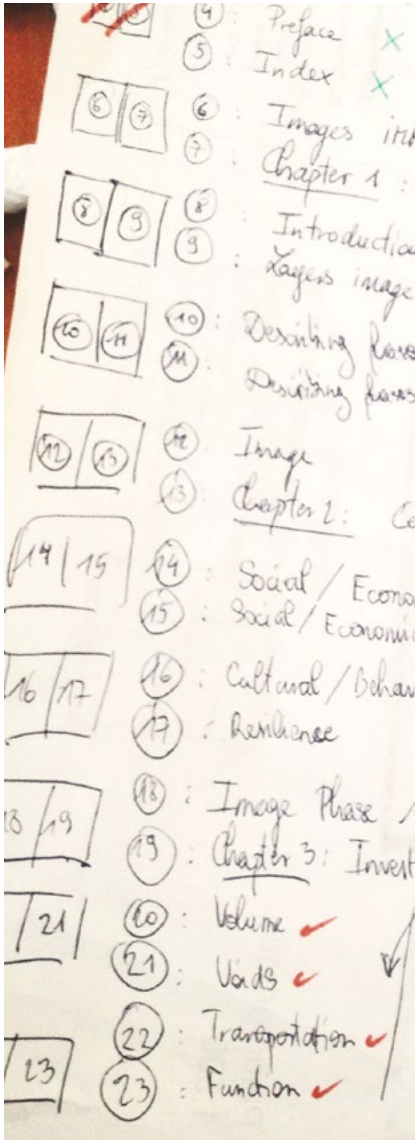 4 : Preface
5 : Index
6 7 6 : Images
7 : Chapter 1 :
8 9 8 : Introduction
9 : Layers image
10 11 10 : Describing
11 : Describing
12 13 12 : Image
13 : Chapter 2 :
14 15 14 : Social / Econo
15 : Social / Economi
16 17 16 : Cultural / Behav
17 : Resilience
19 18 : Image Phase /
19 : Chapter 3 : Invest
21 20 : Volume
21 : Voids
22 : Transportation
23 23 : Function